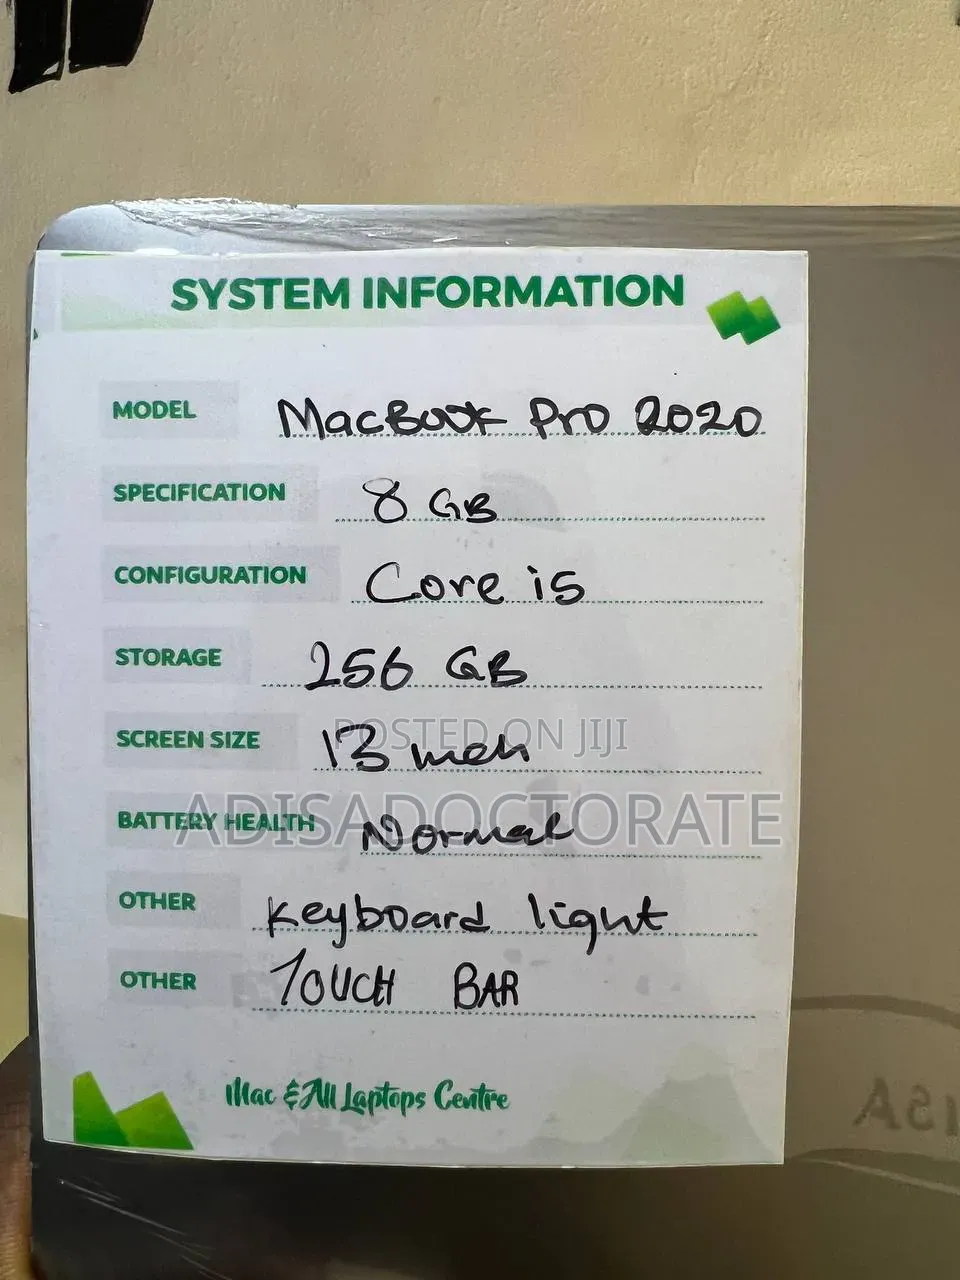 SYSTEM INFORMATION
MODEL MacBook Pro 2020
SPECIFICATION 8 GB
CONFIGURATION Core i5
STORAGE 256 GB
POSTED ON JIJI
SCREEN SIZE 13 inch
ADISADOCTORATE
BATTERY HEALTH Normal
OTHER Keyboard light
OTHER TOUCH BAR
Mac & All Laptops Centre